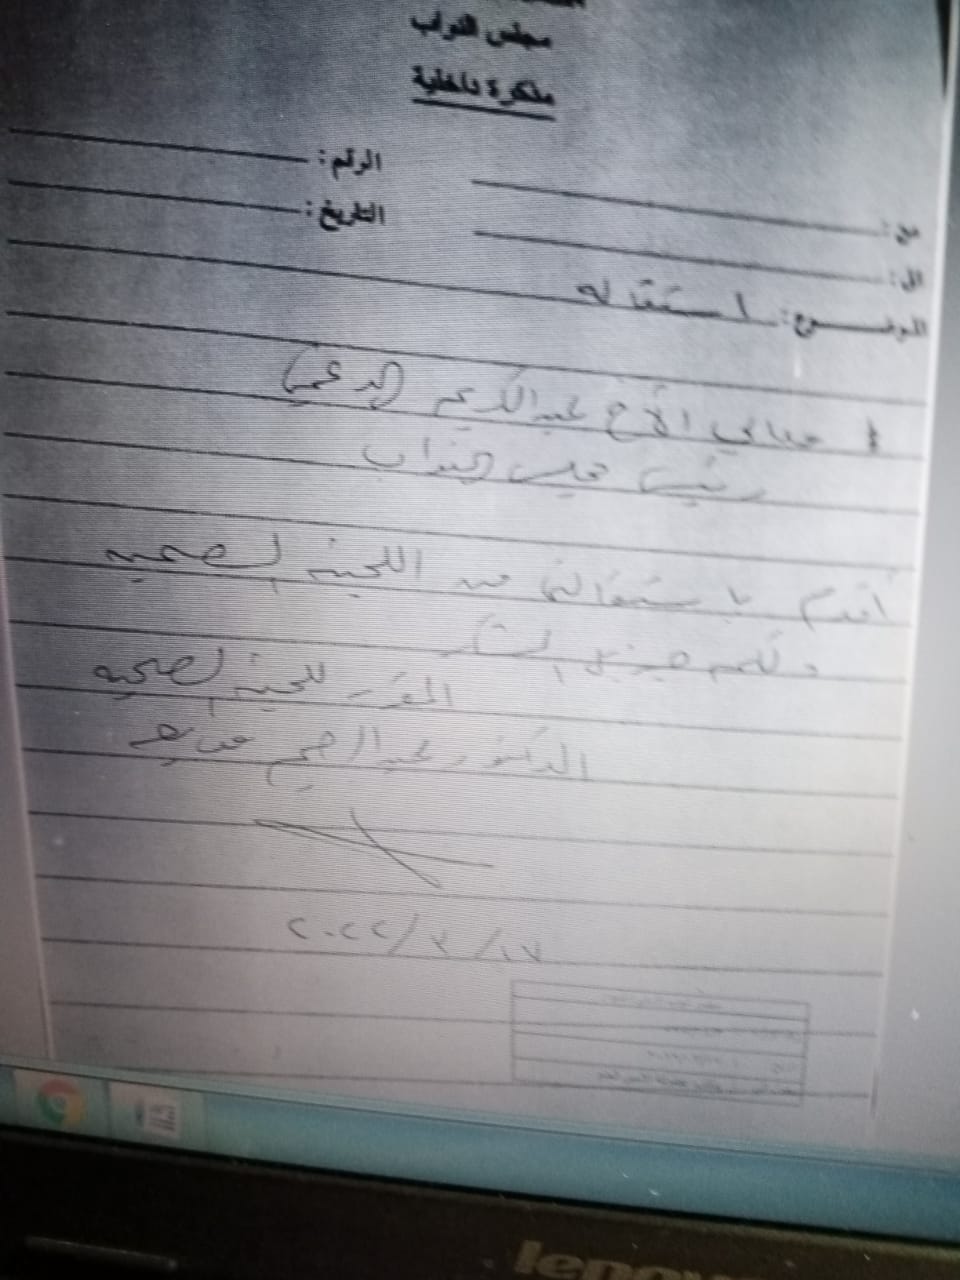 مجلس النواب
مذكرة داخلية
الرقم:
من:
التاريخ:
الى:
الموضوع: استقاله
معالي الأخ عبدالكريم الدغمي
رئيس مجلس النواب
أتقدم باستقالتي من اللجنة الصحيه
ولكم جزيل الشكر
المقرر للجنة الصحيه
الدكتور عبدالرحيم
٢٠٢٢/٢/١٧
lenovo